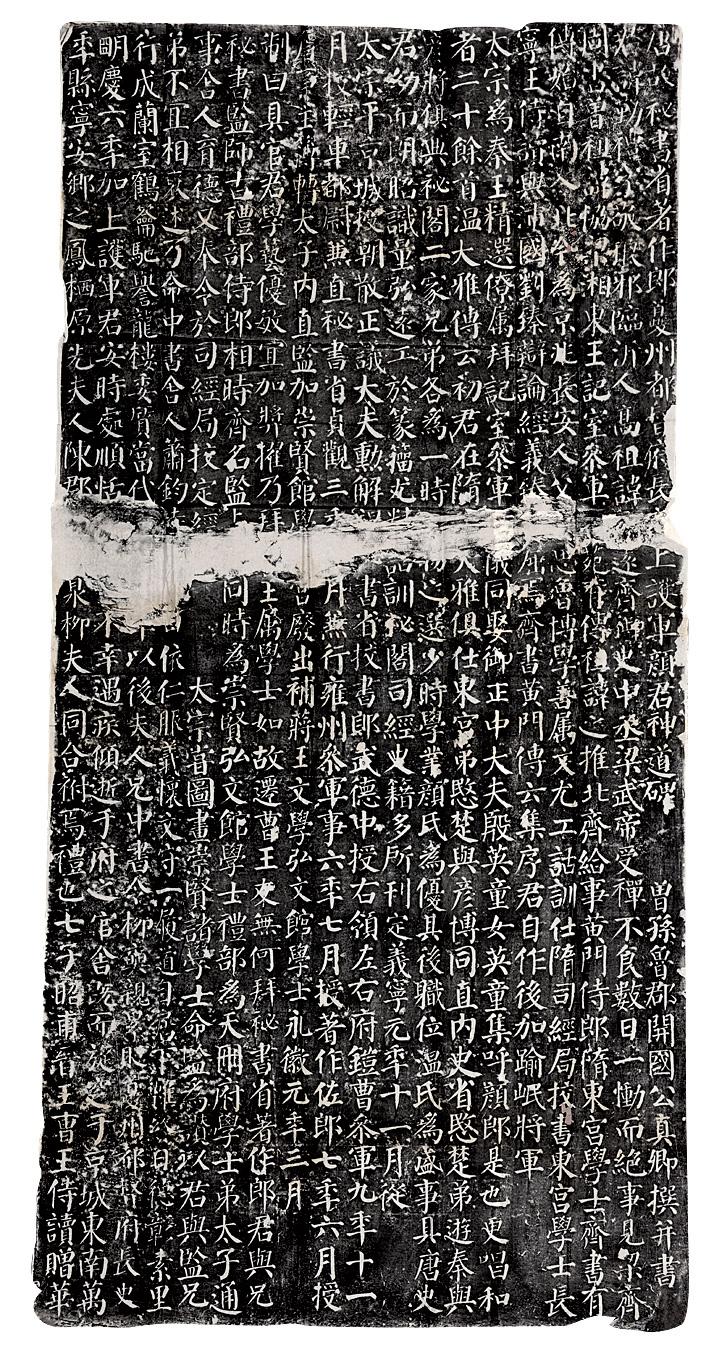 秘書省著作郎夔州都督府長上護軍顏君神道碑 曾孫魯郡開國公真卿撰并書
勤禮字敬琅邪臨沂人高祖諱遠齊御史中丞梁武帝受禪不食數日一慟而絕事見梁齊
周書曾祖諱協梁湘東王記室參軍苑有傳祖諱之推北齊給事黃門侍郎隋東宮學士齊書有
傳始自南入北今為京兆長安人父思魯博學善屬文尤工詁訓仕隋司經局校書東宮學士長
寧王侍讀與沛國劉臻辯論經義臻屈焉齊書黃門傳云集序君自作後加踰岷將軍
太宗為秦王精選僚屬拜記室參軍儀同娶御正中大夫殷英童女英童集呼顏郎是也更唱和
者二十餘首溫大雅傳云初君在隋大雅俱仕東宮弟愍楚與彥博同直內史省愍楚弟遊秦與
彥將俱典祕閣二家兄弟各為一時物之選少時學業顏氏為優其後職位溫氏為盛事具唐史
君幼而朗晤識量弘遠工於篆籀尤精詁訓祕閣司經史籍多所刊定義寧元年十一月從
太宗平京城授朝散正議大夫勳解書省校書郎武德中授右領左右府鎧曹參軍九年十一
月授輕車都尉兼直秘書省貞觀三年月兼行雍州參軍事六年七月授著作佐郎七年六月授
詹事主簿轉太子內直監加崇賢館學宮廢出補蔣王文學弘文館學士永徽元年三月
制曰具官君學藝優敏宜加獎擢乃拜王屬學士如故遷曹王友無何拜秘書省著作郎君與兄
秘書監師古禮部侍郎相時齊名監同時為崇賢弘文館學士禮部為天冊府學士弟太子通
事舍人育德又奉令於司經局校定經 太宗嘗圖畫崇賢諸學士命監為讚以君與監兄
弟不宜相褒述乃命中書舍人蕭鈞依仁服義懷文守一履道自居下帷終日德彰素里
行成蘭室鶴籥馳譽龍樓委質當代以後夫人兄中書令柳奭親累貶夔州都督府長史
明慶六年加上護軍君安時處順恬不幸遇疾傾逝于府之官舍既而旋窆于京城東南萬
年縣寧安鄉之鳳栖原先夫人陳郡泉柳夫人同合祔焉禮也七子昭甫晉王曹王侍讀贈華